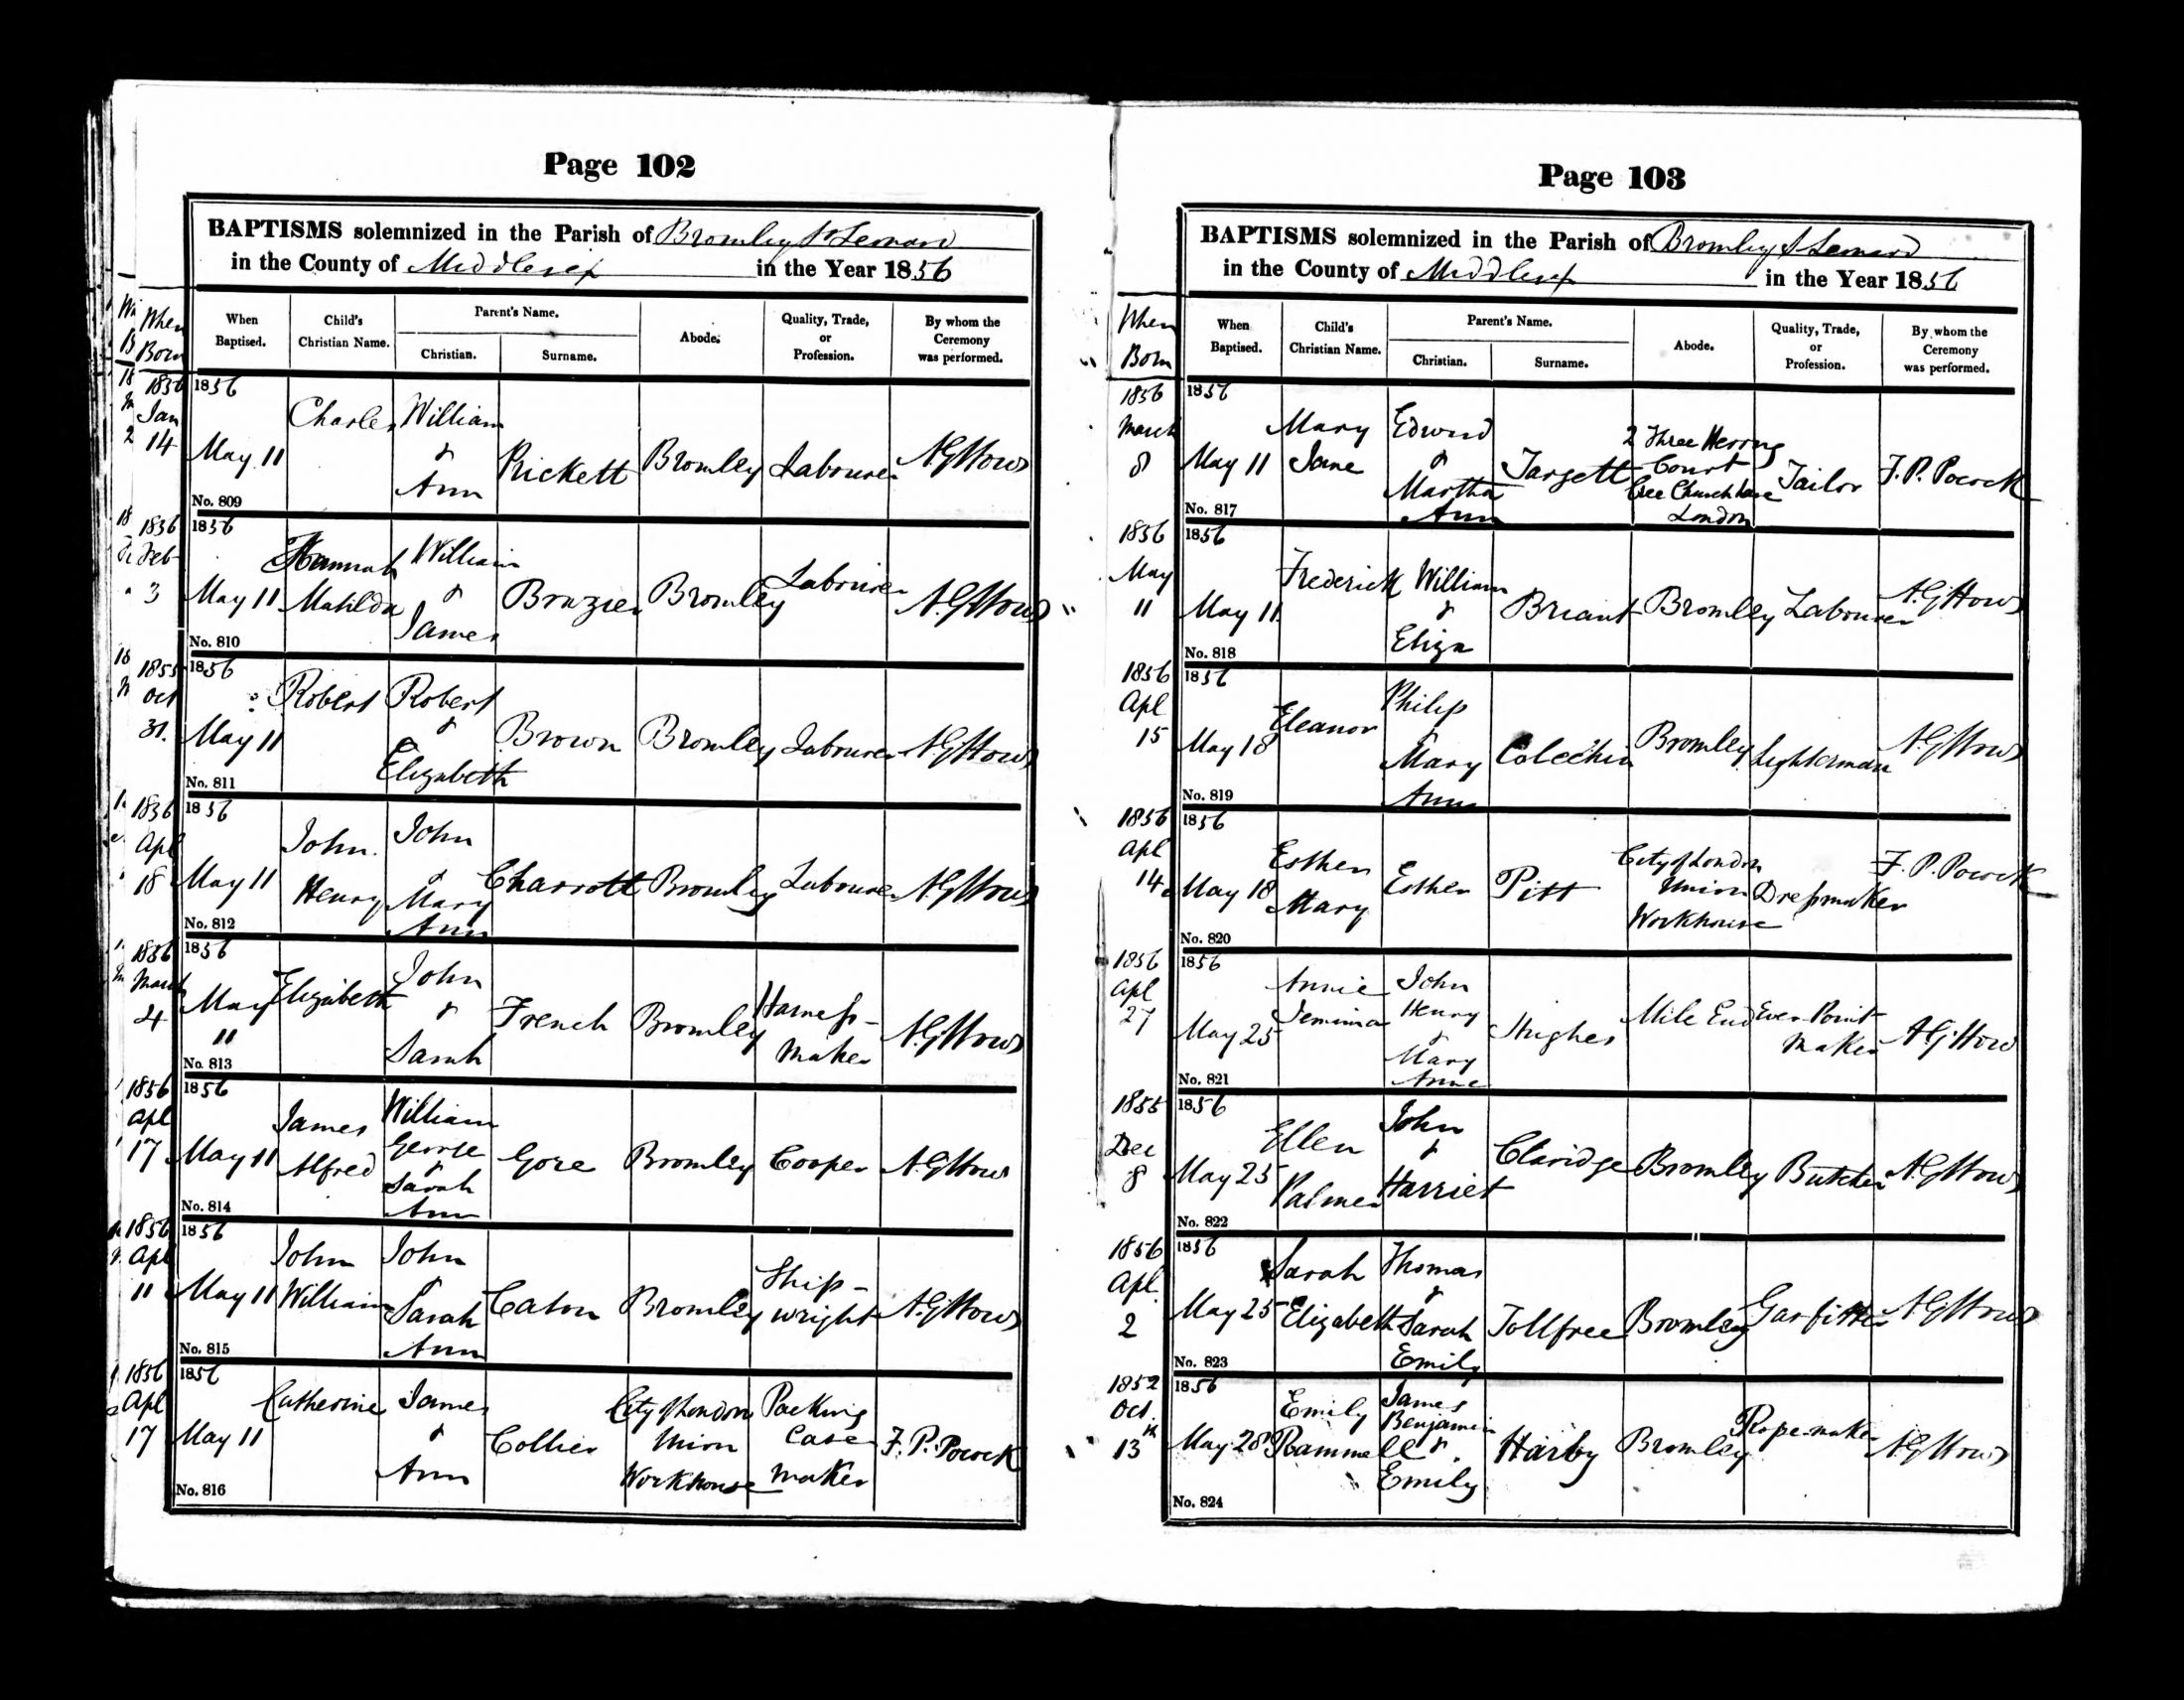 Page 102
BAPTISMS solemnized in the Parish of Bromley St Leonard
in the County of Middlesex in the Year 1856
When Born
When Baptised.
Child's Christian Name.
Parent's Name.
Christian.
Surname.
Abode.
Quality, Trade, or Profession.
By whom the Ceremony was performed.
1856 Jan 14
1856 May 11 No. 809
Charles
William & Ann
Prickett
Bromley
Labourer
A.G. How
1856 Feb 3
1856 May 11 No. 810
Hannah Matilda
William & James
Brazier
Bromley
Labourer
A.G. How
1855 Oct 31.
1856 May 11 No. 811
Robert
Robert & Elizabeth
Brown
Bromley
Labourer
A.G. How
1856 Apl 18
1856 May 11 No. 812
John Henry
John & Mary Ann
Charrott
Bromley
Labourer
A.G. How
1856 March 4
1856 May 11 No. 813
Elizabeth
John & Sarah
French
Bromley
Harness-maker
A.G. How
1856 Apl 17
1856 May 11 No. 814
James Alfred
William George & Sarah Ann
Gore
Bromley
Cooper
A.G. How
1856 Apl 11
1856 May 11 No. 815
John William
John & Sarah Ann
Caton
Bromley
Ship-wright
A.G. How
1856 Apl 17
1856 May 11 No. 816
Catherine
James & Ann
Collier
City of London Union Workhouse
Packing Case maker
F. P. Pocock
Page 103
BAPTISMS solemnized in the Parish of Bromley St Leonard
in the County of Middlesex in the Year 1856
When Born
When Baptised.
Child's Christian Name.
Parent's Name.
Christian.
Surname.
Abode.
Quality, Trade, or Profession.
By whom the Ceremony was performed.
1856 March 8
1856 May 11 No. 817
Mary Jane
Edward & Martha Ann
Targett
2 Three Herring Court Cree Church Lane London
Tailor
F. P. Pocock
1856 May 11
1856 May 11 No. 818
Frederick
William & Eliza
Briant
Bromley
Labourer
A.G. How
1856 Apl 15
1856 May 18 No. 819
Eleanor
Philip & Mary Ann
Colechin
Bromley
Lighterman
A.G. How
1856 Apl 14
1856 May 18 No. 820
Esther Mary
Esther
Pitt
City of London Union Workhouse
Dressmaker
F. P. Pocock
1856 Apl 27
1856 May 25 No. 821
Annie Jemima
John Henry & Mary Anne
Hughes
Mile End
Ever-Point Maker
A.G. How
1855 Dec 8
1856 May 25 No. 822
Ellen Palmer
John & Harriet
Claridge
Bromley
Butcher
A.G. How
1856 Apl. 2
1856 May 25 No. 823
Sarah Elizabeth
Thomas & Sarah Emily
Tollfree
Bromley
Gasfitter
A.G. How
1852 Oct. 13
1856 May 28 No. 824
Emily Rammell
James Benjamin & Emily
Harby
Bromley
Rope-maker
A.G. How